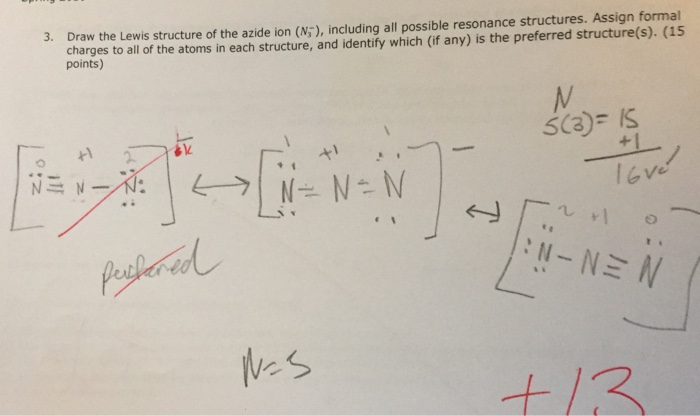 3. Draw the Lewis structure of the azide ion (N₃⁻), including all possible resonance structures. Assign formal
charges to all of the atoms in each structure, and identify which (if any) is the preferred structure(s). (15
points)
N
5(3)= 15
+1
16ve⁻
0 +1 2
[N≡N-N:] ↔ [N=N=N]⁻ ↔ [:N-N≡N]
1 +1 1
2 +1 0
N=5
+13